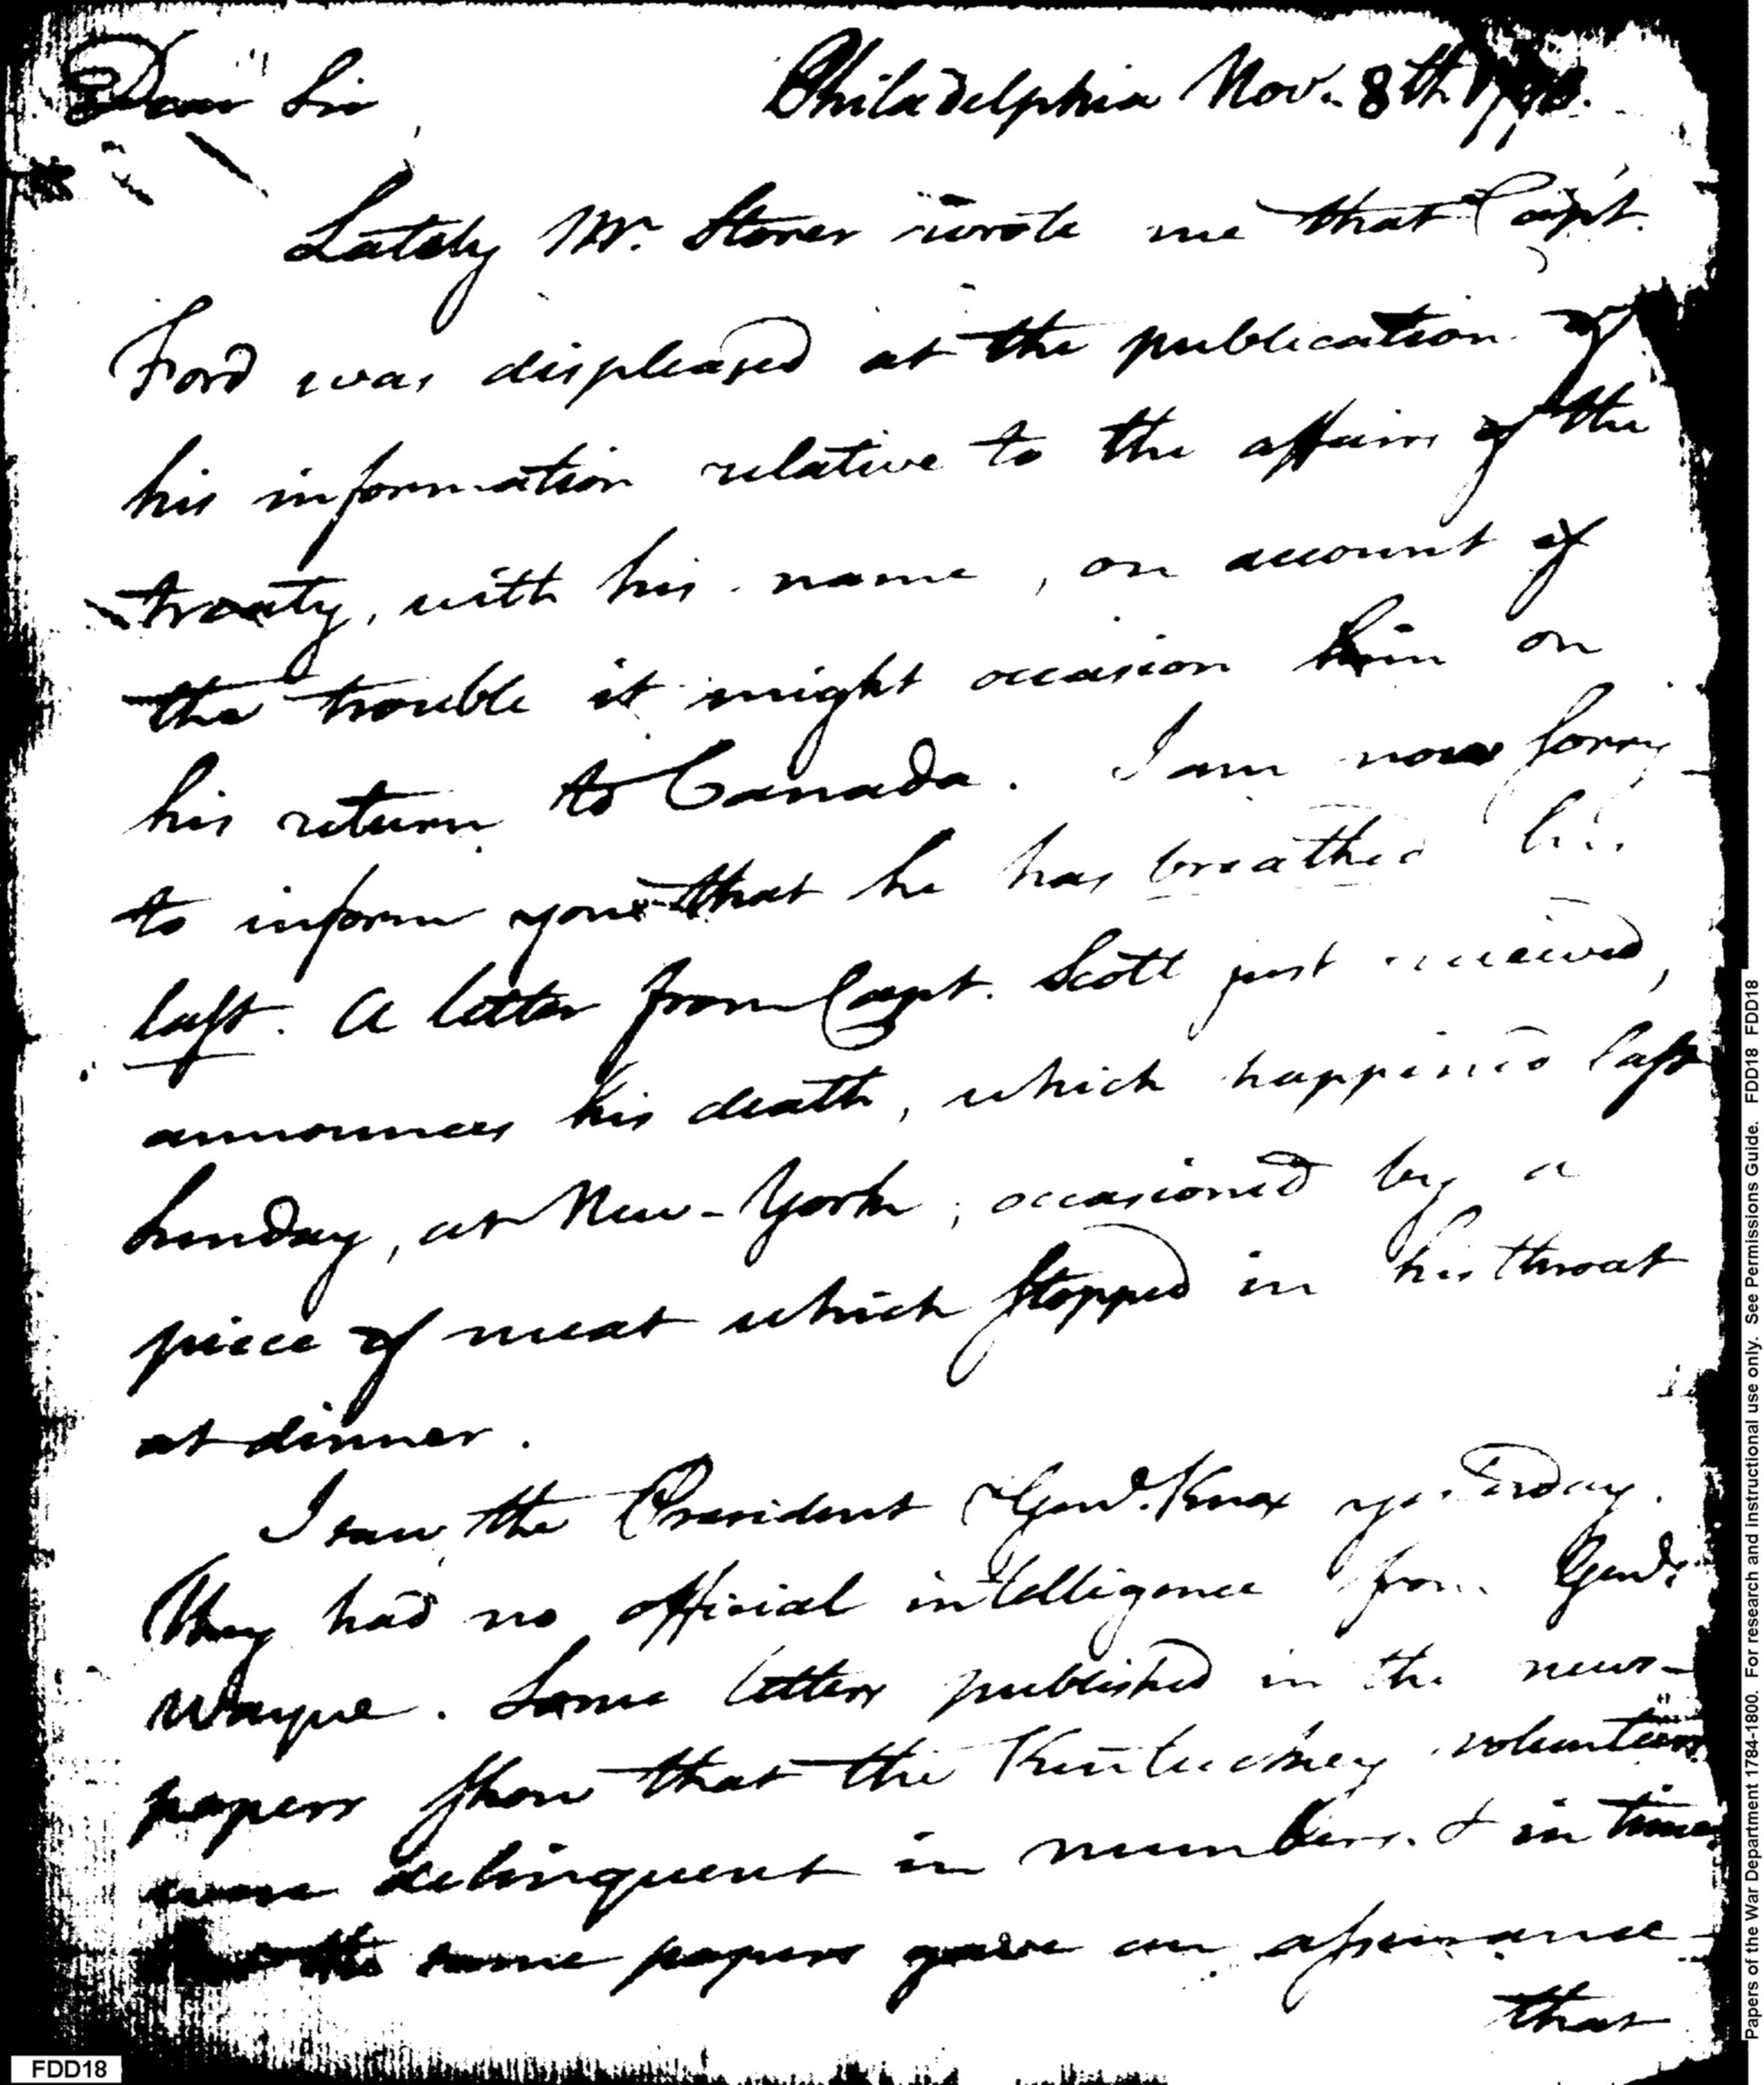 Dear Sir, Philadelphia Nov. 8th
Lately Mr. Storer wrote me that Capt.
Ford was displeased at the publication of
his information relative to the affairs of the
treaty, with his name, on account of
the trouble it might occasion him on
his return to Canada. I am now sorry
to inform you that he has breathed his
last. A letter from Capt. Scott just received,
announces his death, which happened last
Sunday, at New-York, occasioned by a
piece of meat which stopped in his throat
at dinner.
I saw the President & Genl. Knox yesterday.
They had no official intelligence from Genl.
Wayne. Some letters published in the news-
papers show that the Kentuckey volunteers
were delinquent in numbers & in time
the same papers gave an assurance
that
FDD18
Papers of the War Department 1784-1800. For research and instructional use only. See Permissions Guide. FDD18 FDD18